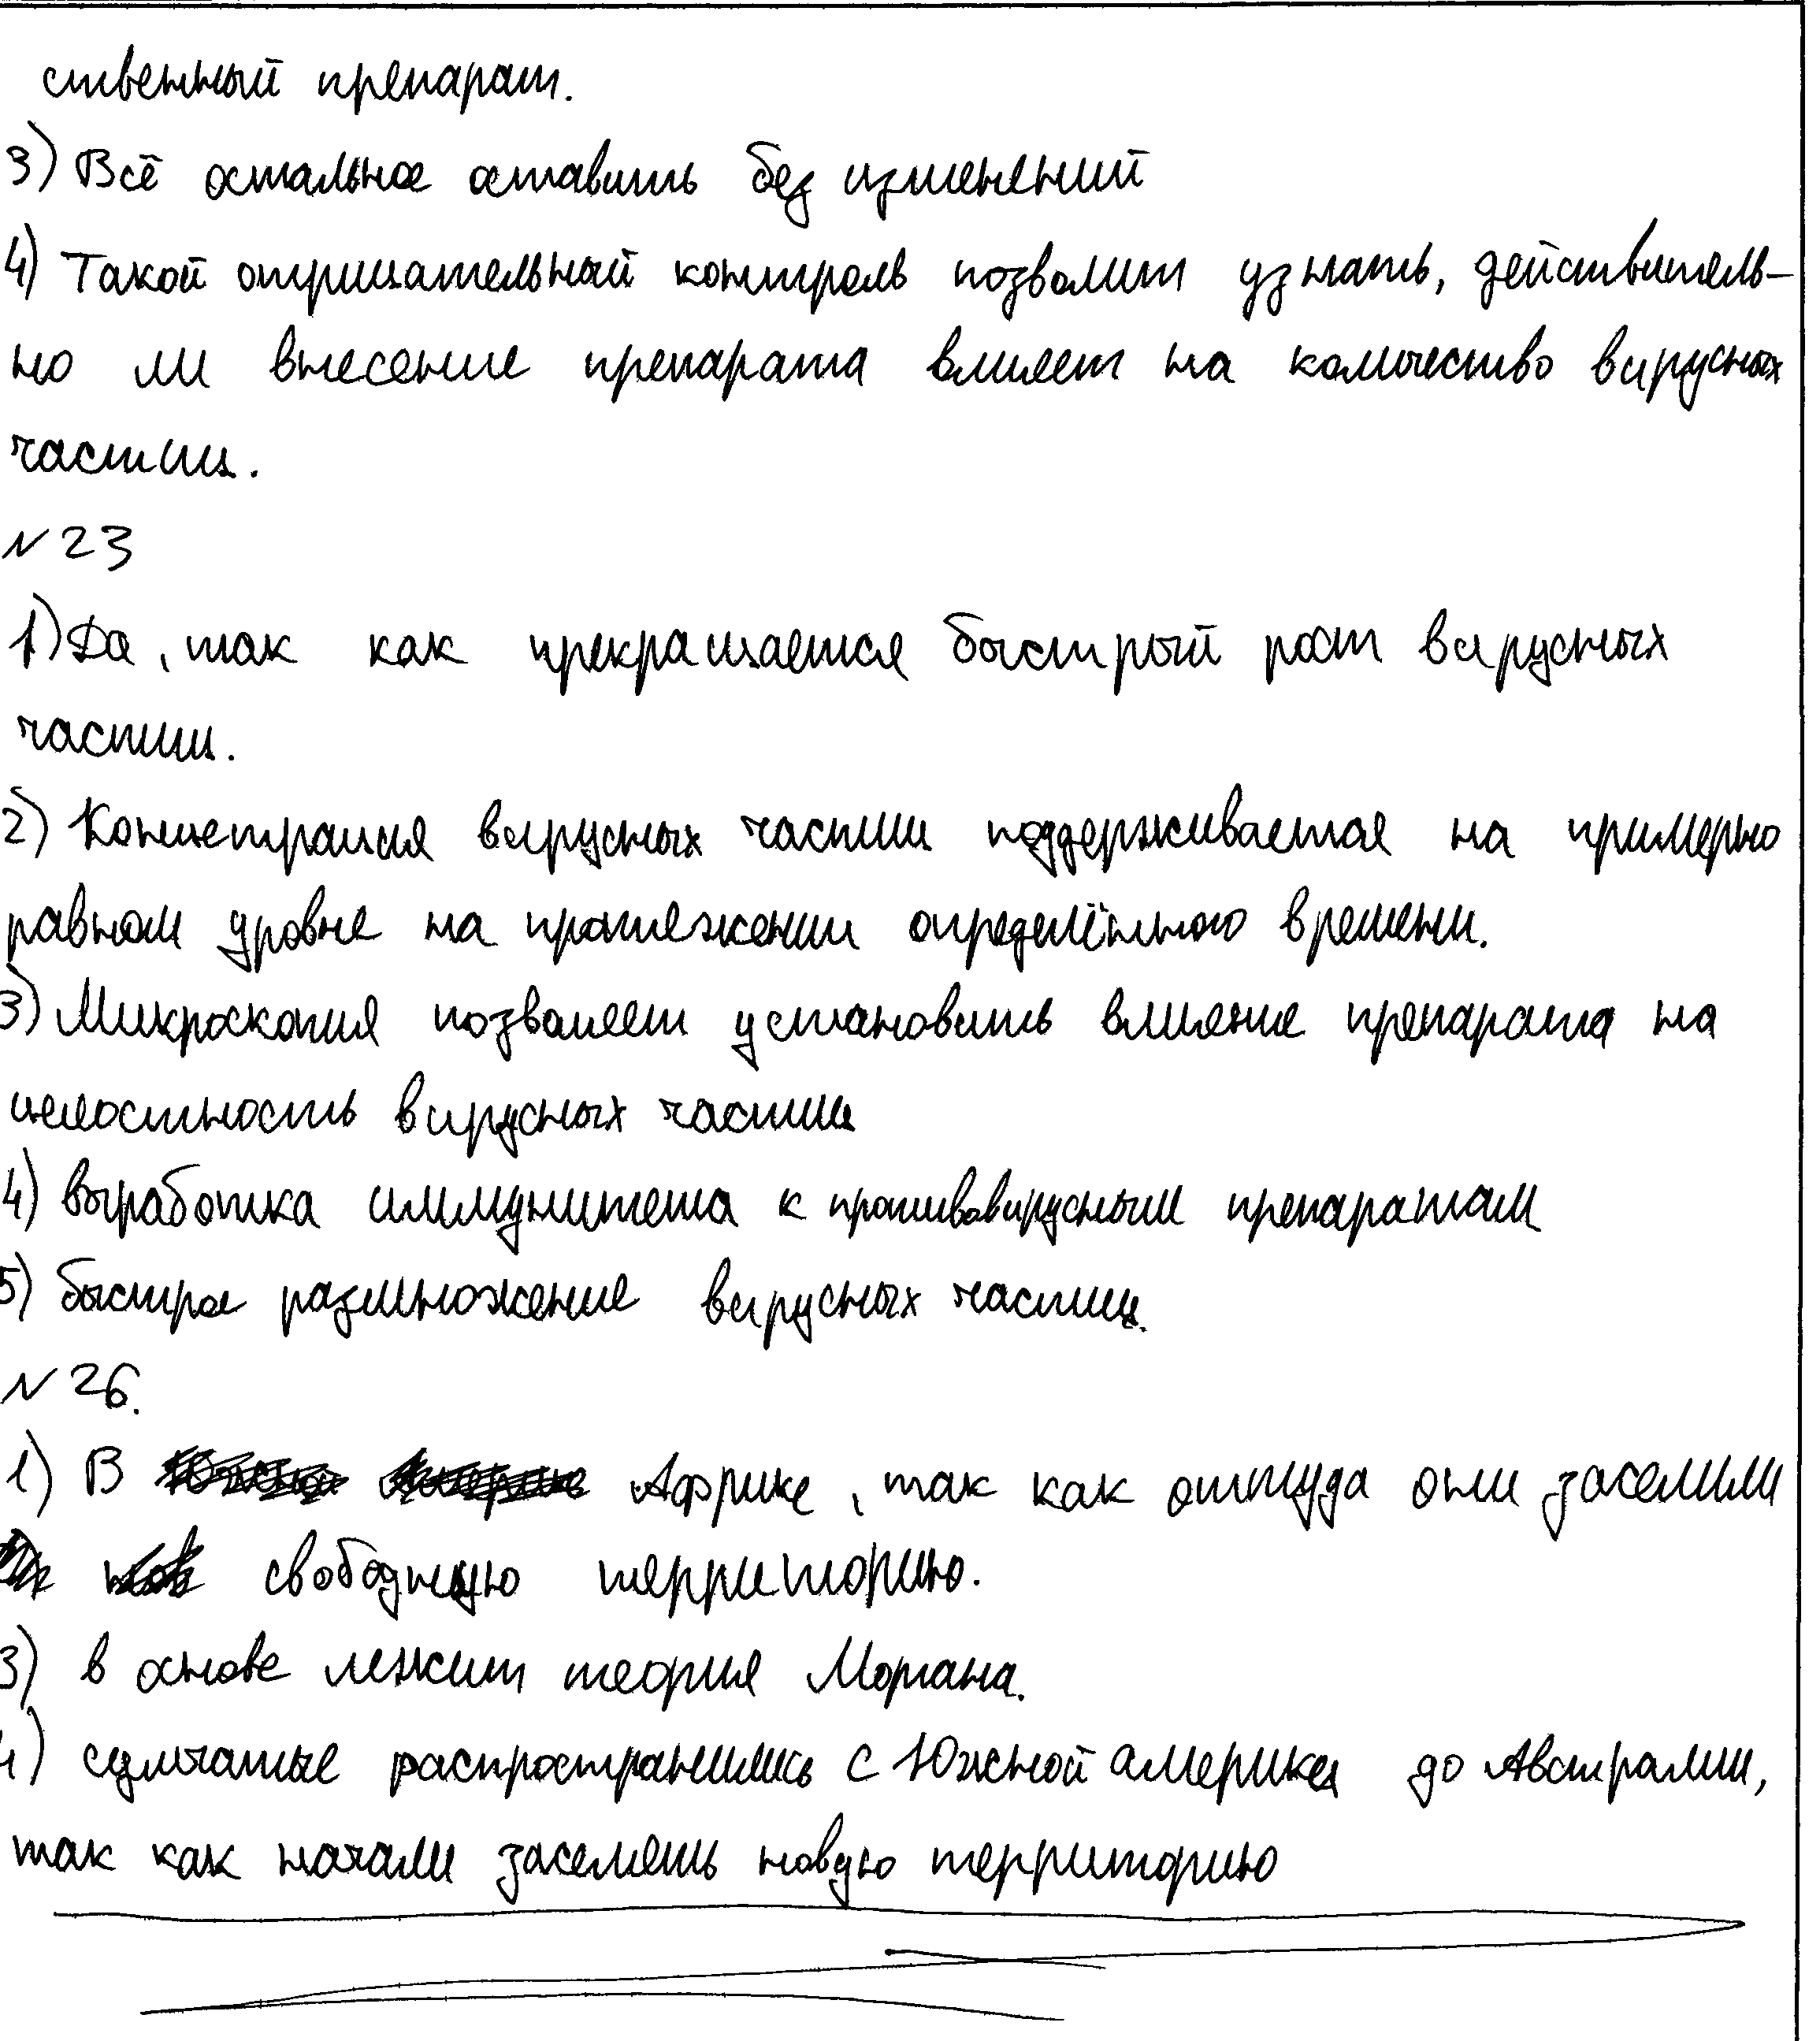 ственный препарат.
3) Всё остальное оставить без изменений
4) Такой отрицательный контроль позволит узнать, действитель-
но ли внесение препарата влияет на количество вирусных
частиц.
№23
1) Да, так как прекращается быстрый рост вирусных
частиц.
2) Концетрация вирусных частиц поддерживается на примерно
равном уровне на протяжении определённого времени.
3) Микроскопия позволяет установить влияние препарата на
целостность вирусных частиц
4) выработка иммунитета к противовирусным препаратам
5) быстрое размножение вирусных частиц.
№26.
1) В Африке, так как оттуда они заселили
свободную территорию.
3) в основе лежит теория Моргана.
4) сумчатые распространились с Южной америки до Австралии,
так как начали заселять новую территорию